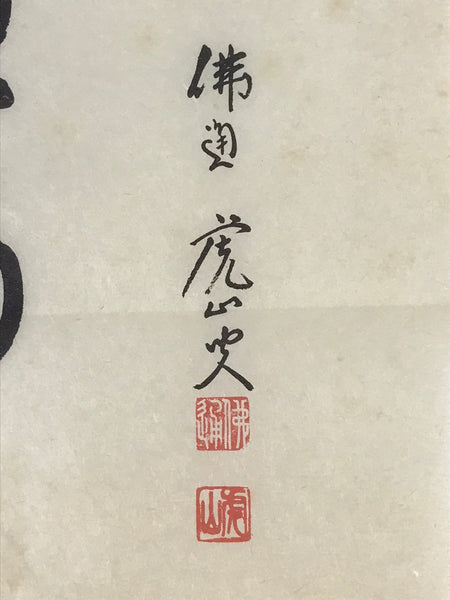 佛通 虎山叟
佛通
虎山